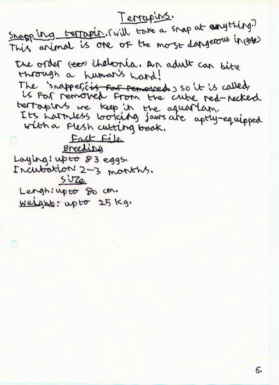 Terrapins.
Snapping terrapin. (will take a snap at anything)
This animal is one of the most dangerous in
the order chelonia. An adult can bite
through a human's hand!
The 'snapper, is far removed, so it is called
is far removed from the cute red-necked
terrapins we keep in the aquarium
Its harmless looking jaws are aptly-equipped
with a flesh cutting beak.
Fact File
Breeding
Laying: up to 83 eggs.
Incubation: 2-3 months.
Size
Lengh: up to 80 cm.
Weight: up to 25 kg.
6